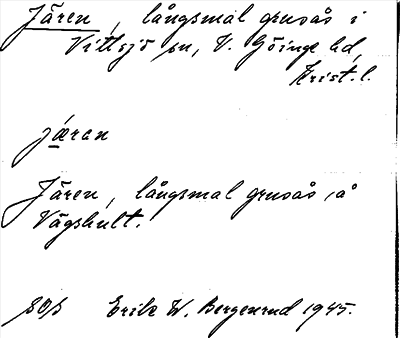 Jären, långsmal grusås i
Vittsjö sn, V. Göinge hd,
Krist. l.
jæ̀ran
Jären, långsmal grusås, å
Vågshult.
Erik W. Bergenrud 1945.